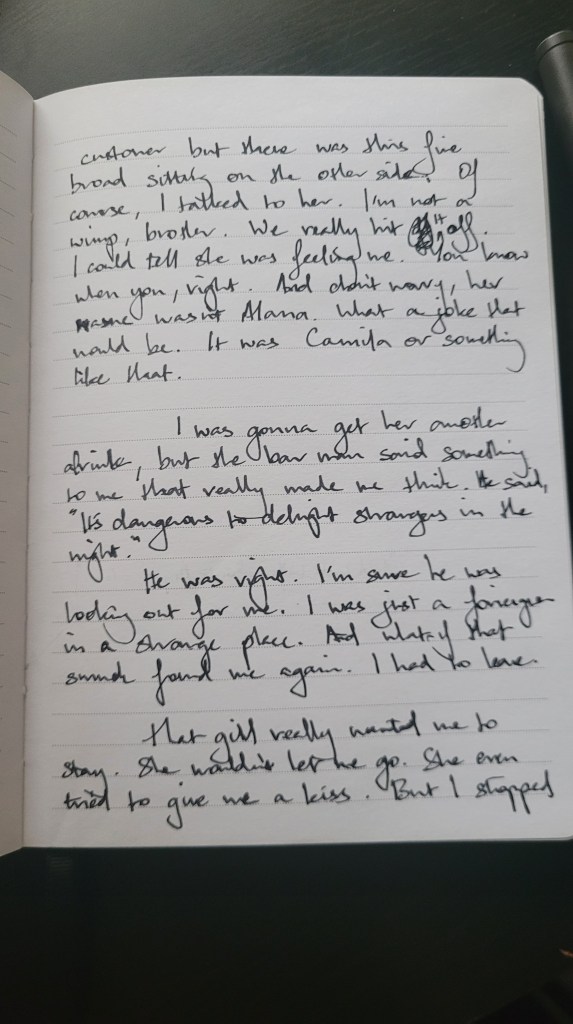 customer but there was this fine
broad sitting on the other side. Of
course, I talked to her. I'm not a
wimp, brother. We really hit it off.
I could tell she was feeling me. You know
when you, right. And don't worry, her
name wasn't Alana. What a joke that
would be. It was Camila or something
like that.
I was gonna get her another
drink, but the bar man said something
to me that really made me think. He said,
"It's dangerous to delight strangers in the
night."
He was right. I'm sure he was
looking out for me. I was just a foreigner
in a strange place. And what if that
found me again. I had to leave.
that girl really wanted me to
stay. She wouldn't let me go. She even
tried to give me a kiss. But I stopped